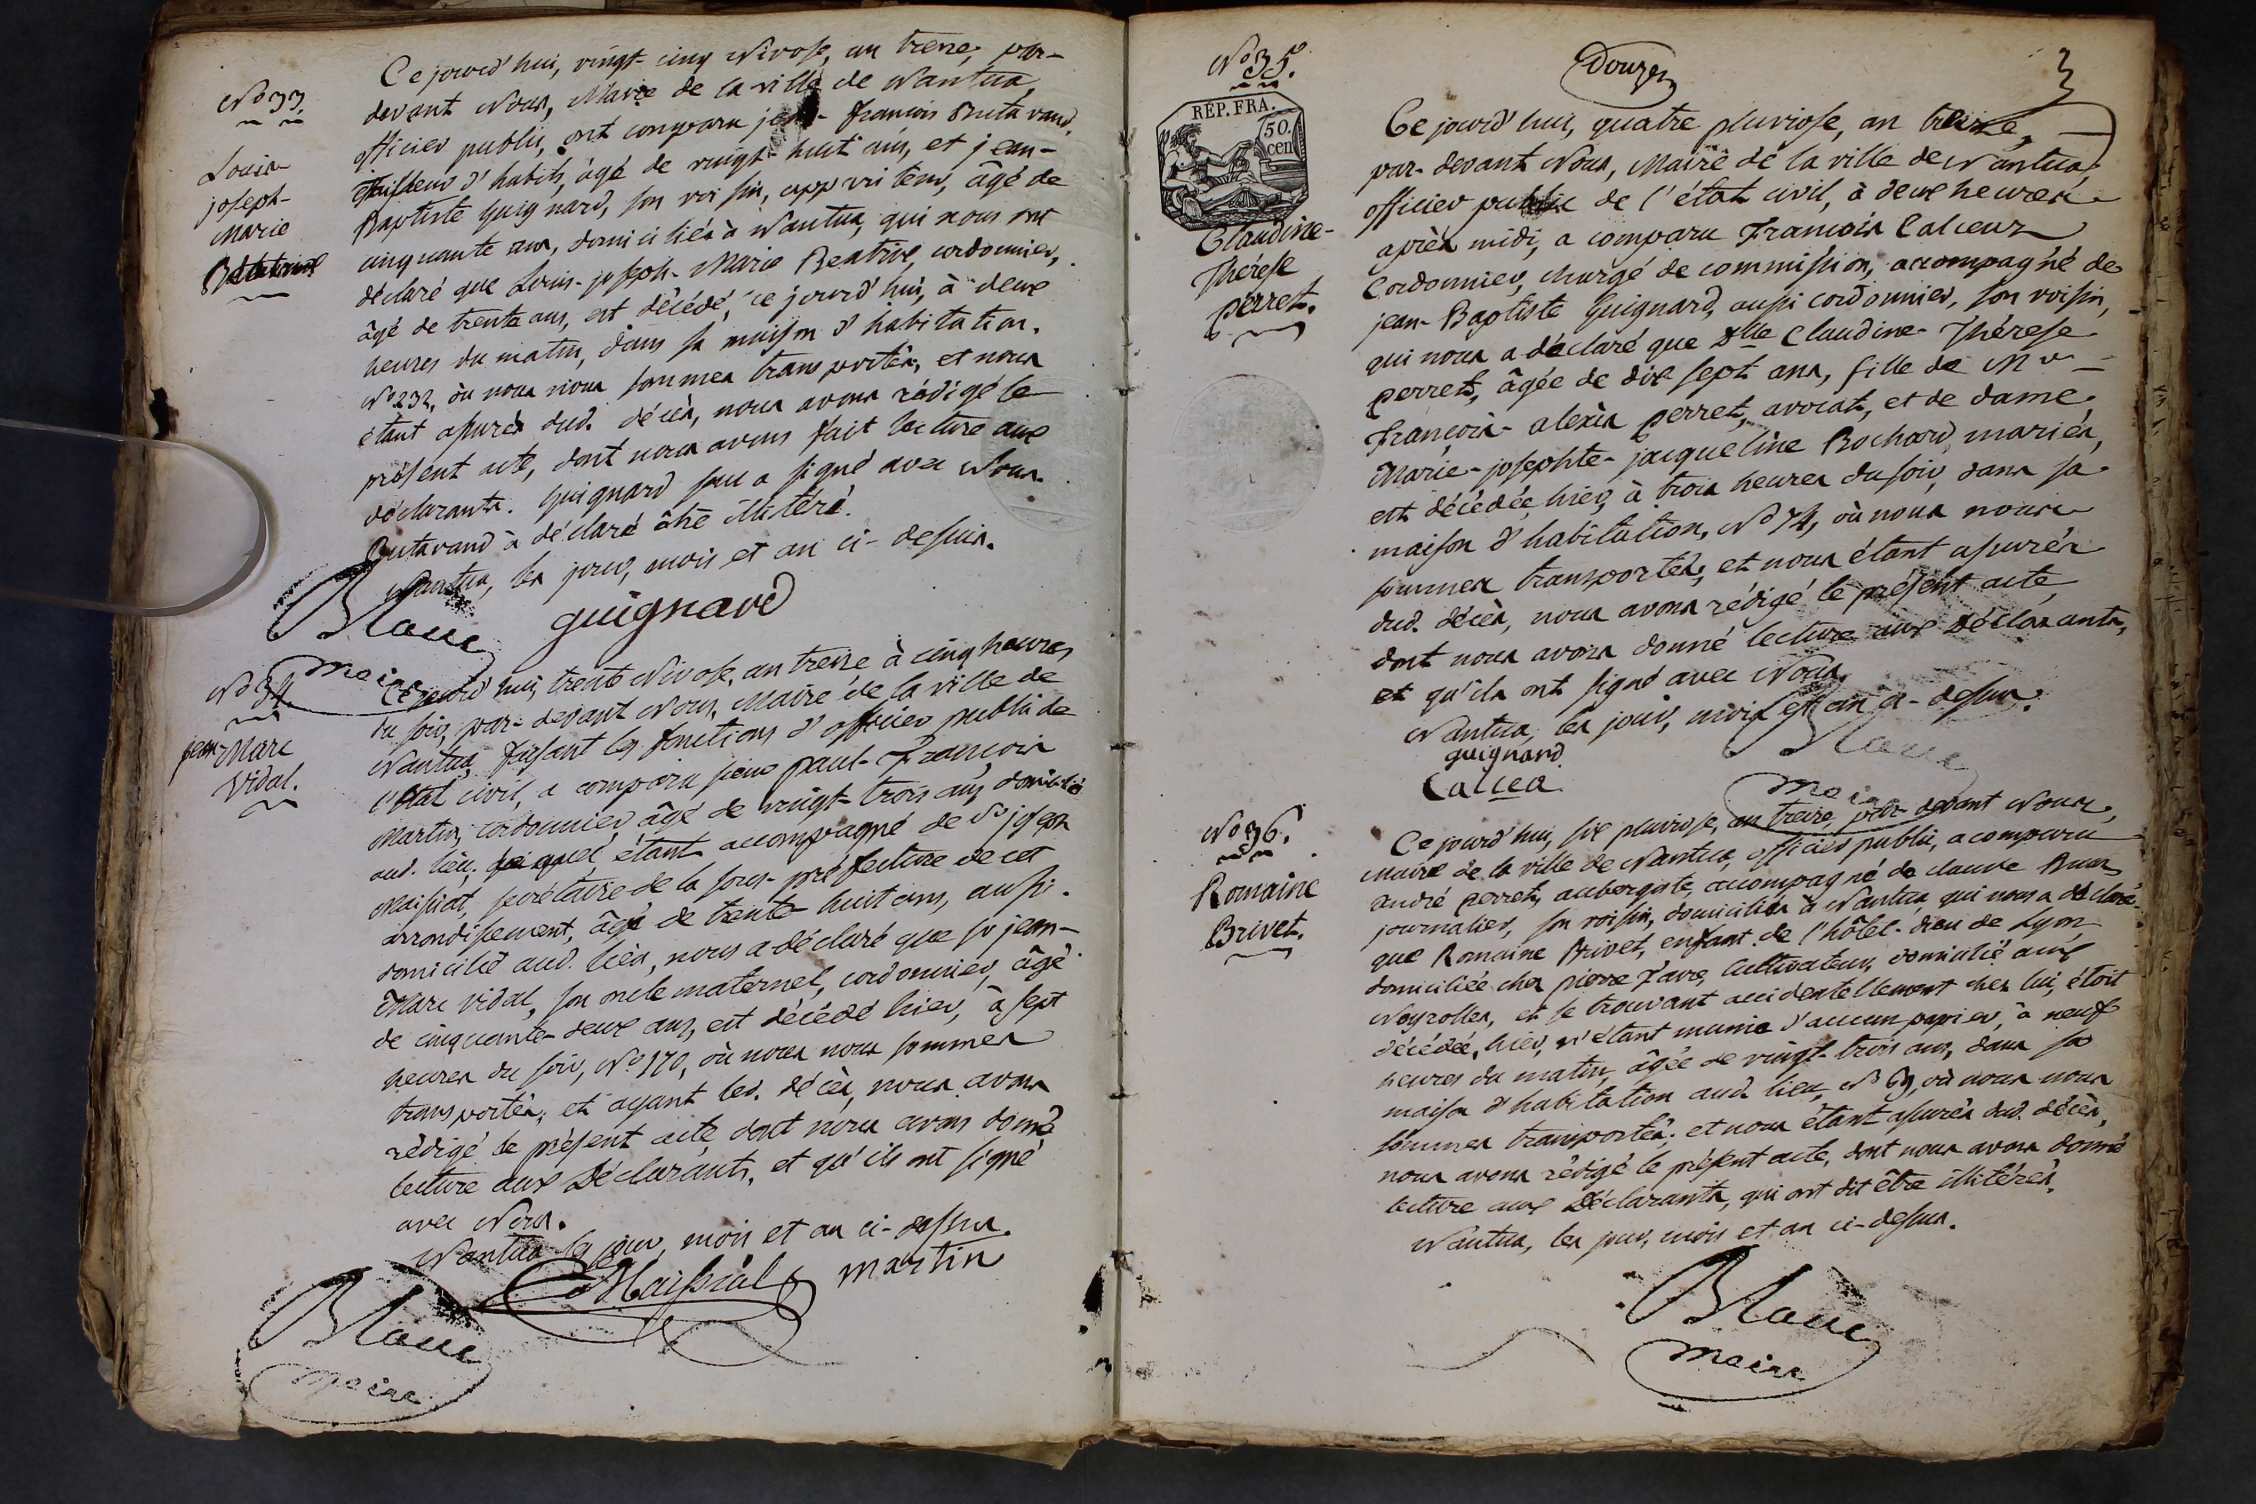 N.o 33.
Louis-
joseph-
Marie
Ce jourd'hui, vingt-cinq Nivose, an treize, par-
devant Nous, Maire de la ville de Nantua,
officier public, ont comparu jean-françois Butavand,
tailleur d'habits, âgé de vingt-huit ans, et jean-
Baptiste Guignard, son voisin, appreteur, âgé de
cinquante ans, domiciliés à Nantua, qui nous ont
déclaré que Louis-joseph-Marie Beatrix, cordonnier,
âgé de trente ans, est décédé, ce jourd'hui, à deux
heures du matin, dans sa maison d'habitation.
N.o 232, où nous nous sommes transportés, et nous
étant assurés dud. décès, nous avons rédigé le
présent acte, dont nous avons fait lecture aux
déclarants. Guignard seul a signé avec Nous.
Butavand a déclaré être illitéré.
Nantua, les jour, mois et an ci-dessus.
Blanc
maire
guignard
N.o 34.
jean-Marc
Vidal.
Ce jourd'hui, trente Nivose, an treize à cinq heures
du soir, par-devant Nous, Maire de la ville de
Nantua, faisant les fonctions d'officier public de
l'état civil, a comparu sieur paul-François
Martin, cordonnier, âgé de vingt-trois ans, domicilié
aud. lieu, lequel étant accompagné de Sr joseph
Maissiat, secrétaire de la sous-préfecture de cet
arrondissement, âgé de trente-huit ans, aussi
domicilié aud. lieu, nous a déclaré que sr jean-
Marc Vidal, son oncle maternel, cordonnier, âgé
de cinquante-deux ans, est décédé hier, à sept
heures du soir, N.o 170, où nous nous sommes
transportés, et ayant led. décès, nous avons
rédigé le présent acte, dont nous avons donné
lecture aux Déclarants, et qu'ils ont signé
avec Nous.
Nantua les jour, mois et an ci-dessus.
Maissiat martin
Blanc
maire
Douze
N.o 35.
REP. FRA.
50.
cen
Claudine-
Thérese
perret.
Ce jourd'hui, quatre pluviose, an treize,
par-devant Nous, Maire de la ville de Nantua,
officier public de l'état civil, à deux heures
après midi, a comparu François Calceaz
Cordonnier, chargé de commission, accompagné de
jean-Baptiste Guignard, aussi cordonnier, son voisin,
qui nous a déclaré que Dlle Claudine-Thérese
perret, âgée de dix sept ans, fille de Mr
François-alexis perret, avocat, et de dame
Marie-josephte-jacqueline Rochard, mariés,
est décédée hier, à trois heures du soir, dans sa
maison d'habitation, N.o 74, où nous nous
sommes transportés, et nous étant assurés
dud. décès, nous avons rédigé le présent acte,
dont nous avons donné lecture aux Déclarants,
et qu'ils ont signé avec Nous.
Nantua, les jour, mois et an ci-dessus.
guignard
Calcea
Blanc
maire
N.o 36.
Romaine
Brivet.
Ce jourd'hui, six pluviose, an treize, par-devant Nous,
Maire de la ville de Nantua, officier public, a comparu
andré perret, aubergiste, accompagné de claude
journalier, son voisin, domiciliés à Nantua, qui nous a déclaré
que Romaine Brivet, enfant de l'hôtel-dieu de Lyon
domiciliée chez pierre favre, Cultivateur, domicilié aux
Neyrolles, et se trouvant accidentellement chez lui, étoit
décédée, hier, n'étant munie d'aucun papier, à neuf
heures du matin, âgée de vingt-trois ans, dans sa
maison d'habitation aud. lieu, N.o 69, où nous nous
sommes transportés; et nous étant assurés dud. décès,
nous avons rédigé le présent acte, dont nous avons donné
lecture aux Déclarants, qui ont dit être illitérés.
Nantua, les jour, mois et an ci-dessus.
Blanc
maire